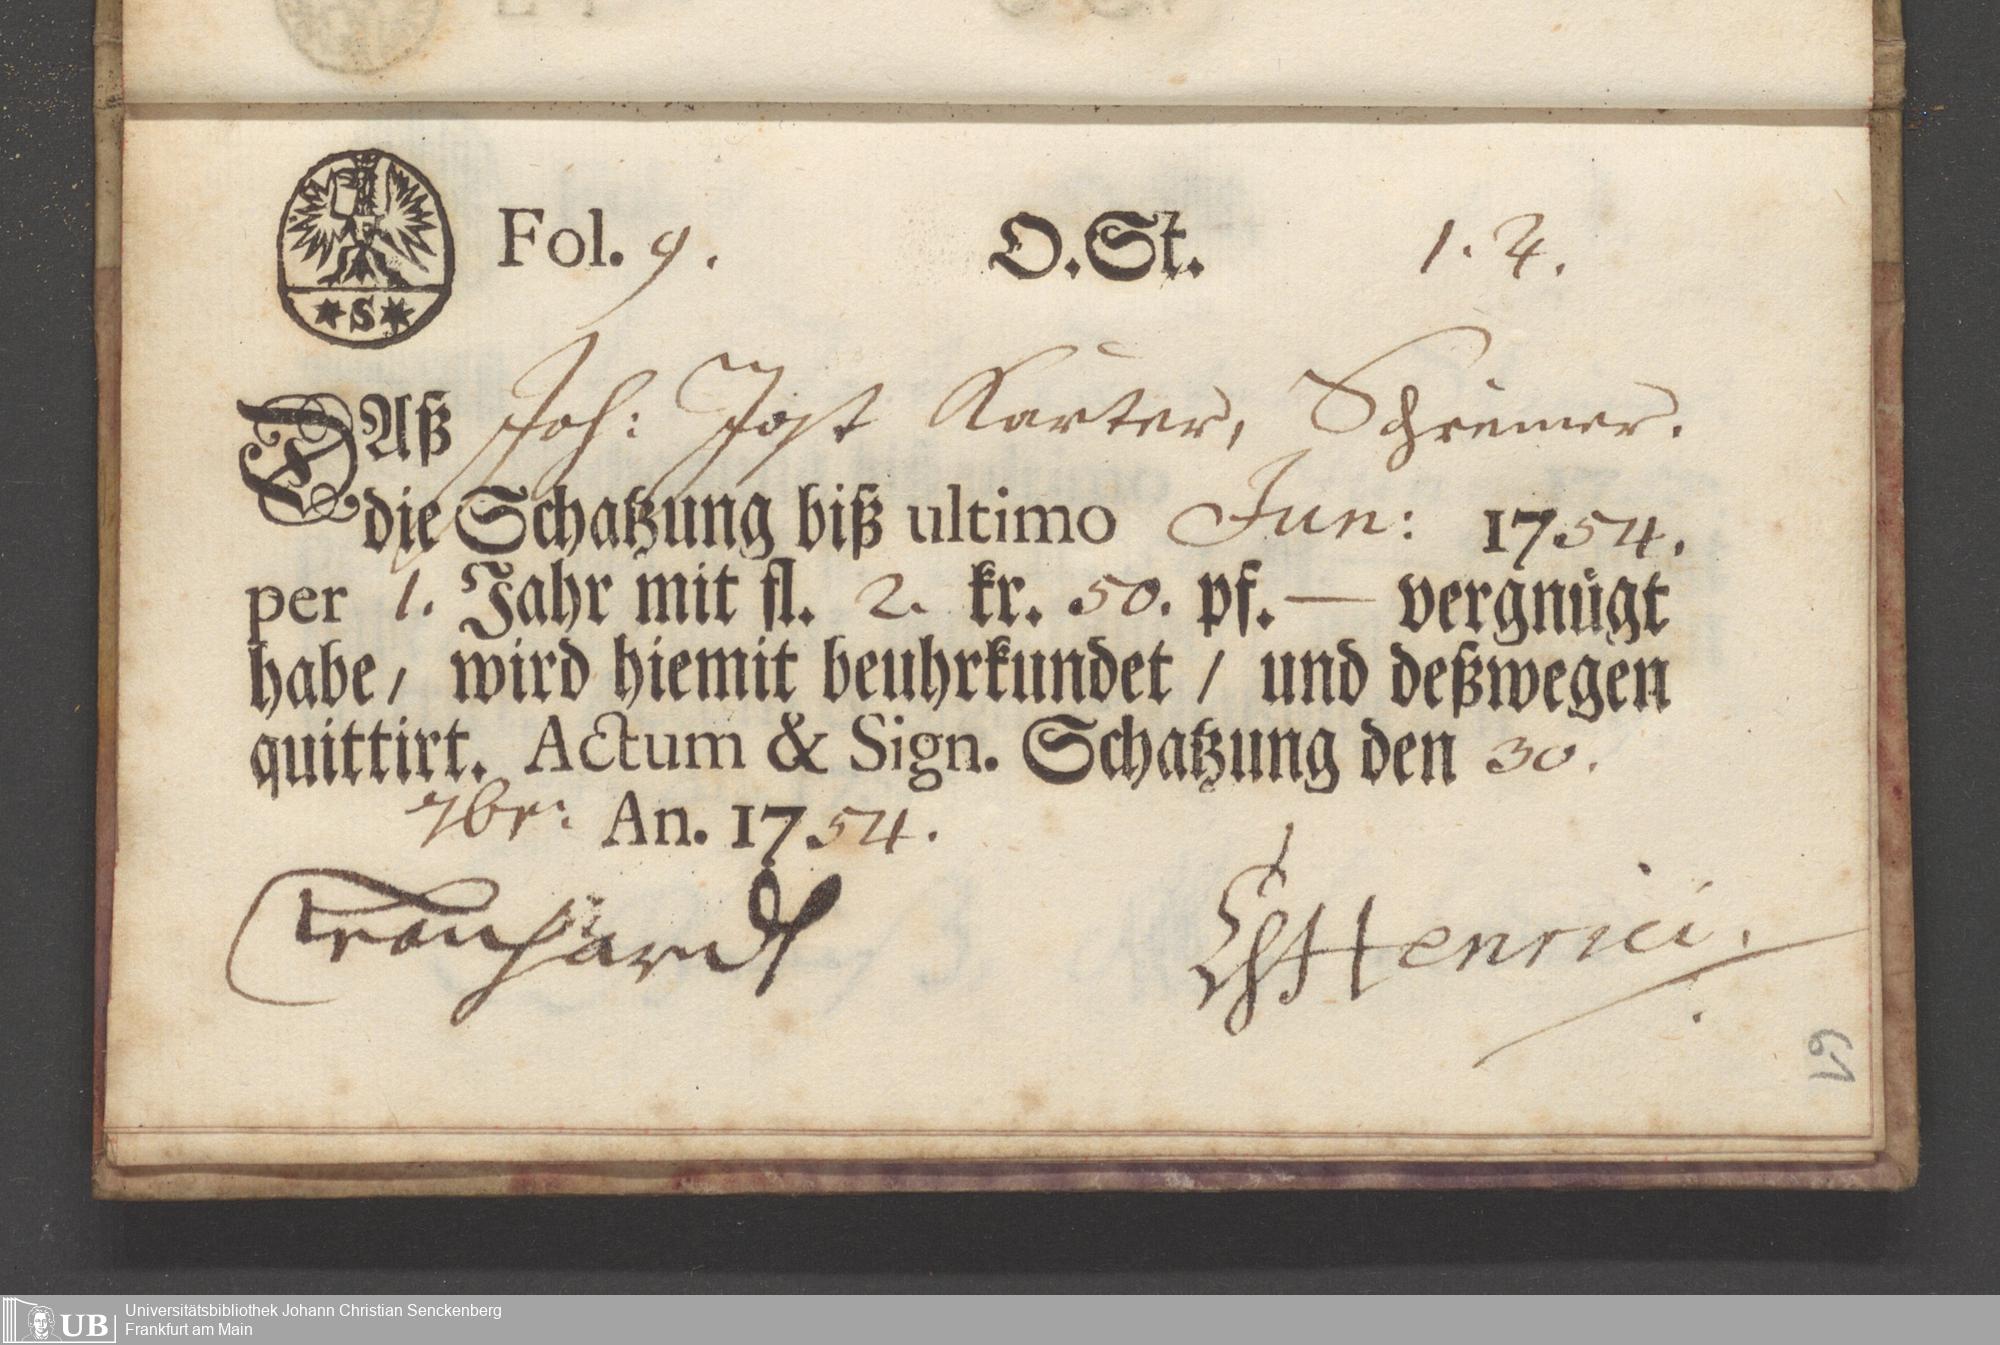 Fol. 9. O.St. 1. 4.
*S*
DAß Joh: Jost Karter, Schreiner.
die Schatzung biß ultimo Jun: 1754.
per 1. Jahr mit fl. 2. kr. 50. pf. — vergnügt
habe/ wird hiemit beuhrkundet / und deßwegen
quittirt. Actum & Sign. Schatzung den 30.
7br: An. 1754.
Henrici.
UB Universitätsbibliothek Johann Christian Senckenberg
Frankfurt am Main